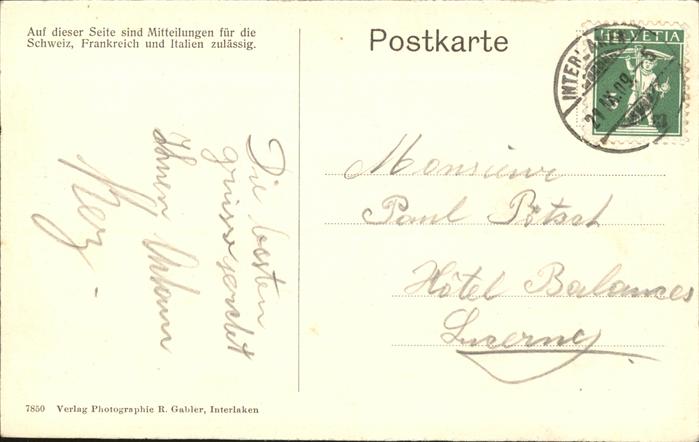 Auf dieser Seite sind Mitteilungen für die
Schweiz, Frankreich und Italien zulässig.
Postkarte
HELVETIA
INTERLAKEN
21.IX.09.
Die besten
grüsse sendet
Ihnen
Monsieur
Paul Pötsch
Hôtel Balances
Lucerne
7850 Verlag Photographie R. Gabler, Interlaken